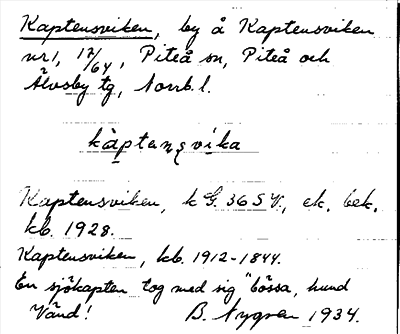 Kaptensviken, by å Kaptensviken
nr 1, 17/64, Piteå sn, Piteå och
Älvsby tg, Norrb. l.
kàptensvika
Kaptensviken, k G. 36 S V., ek. bek.
kb. 1928.
Kaptensviken, kb. 1912-1844.
En sjökapten tog med sig "bössa, hund
Vänd! B. Nygren 1934.